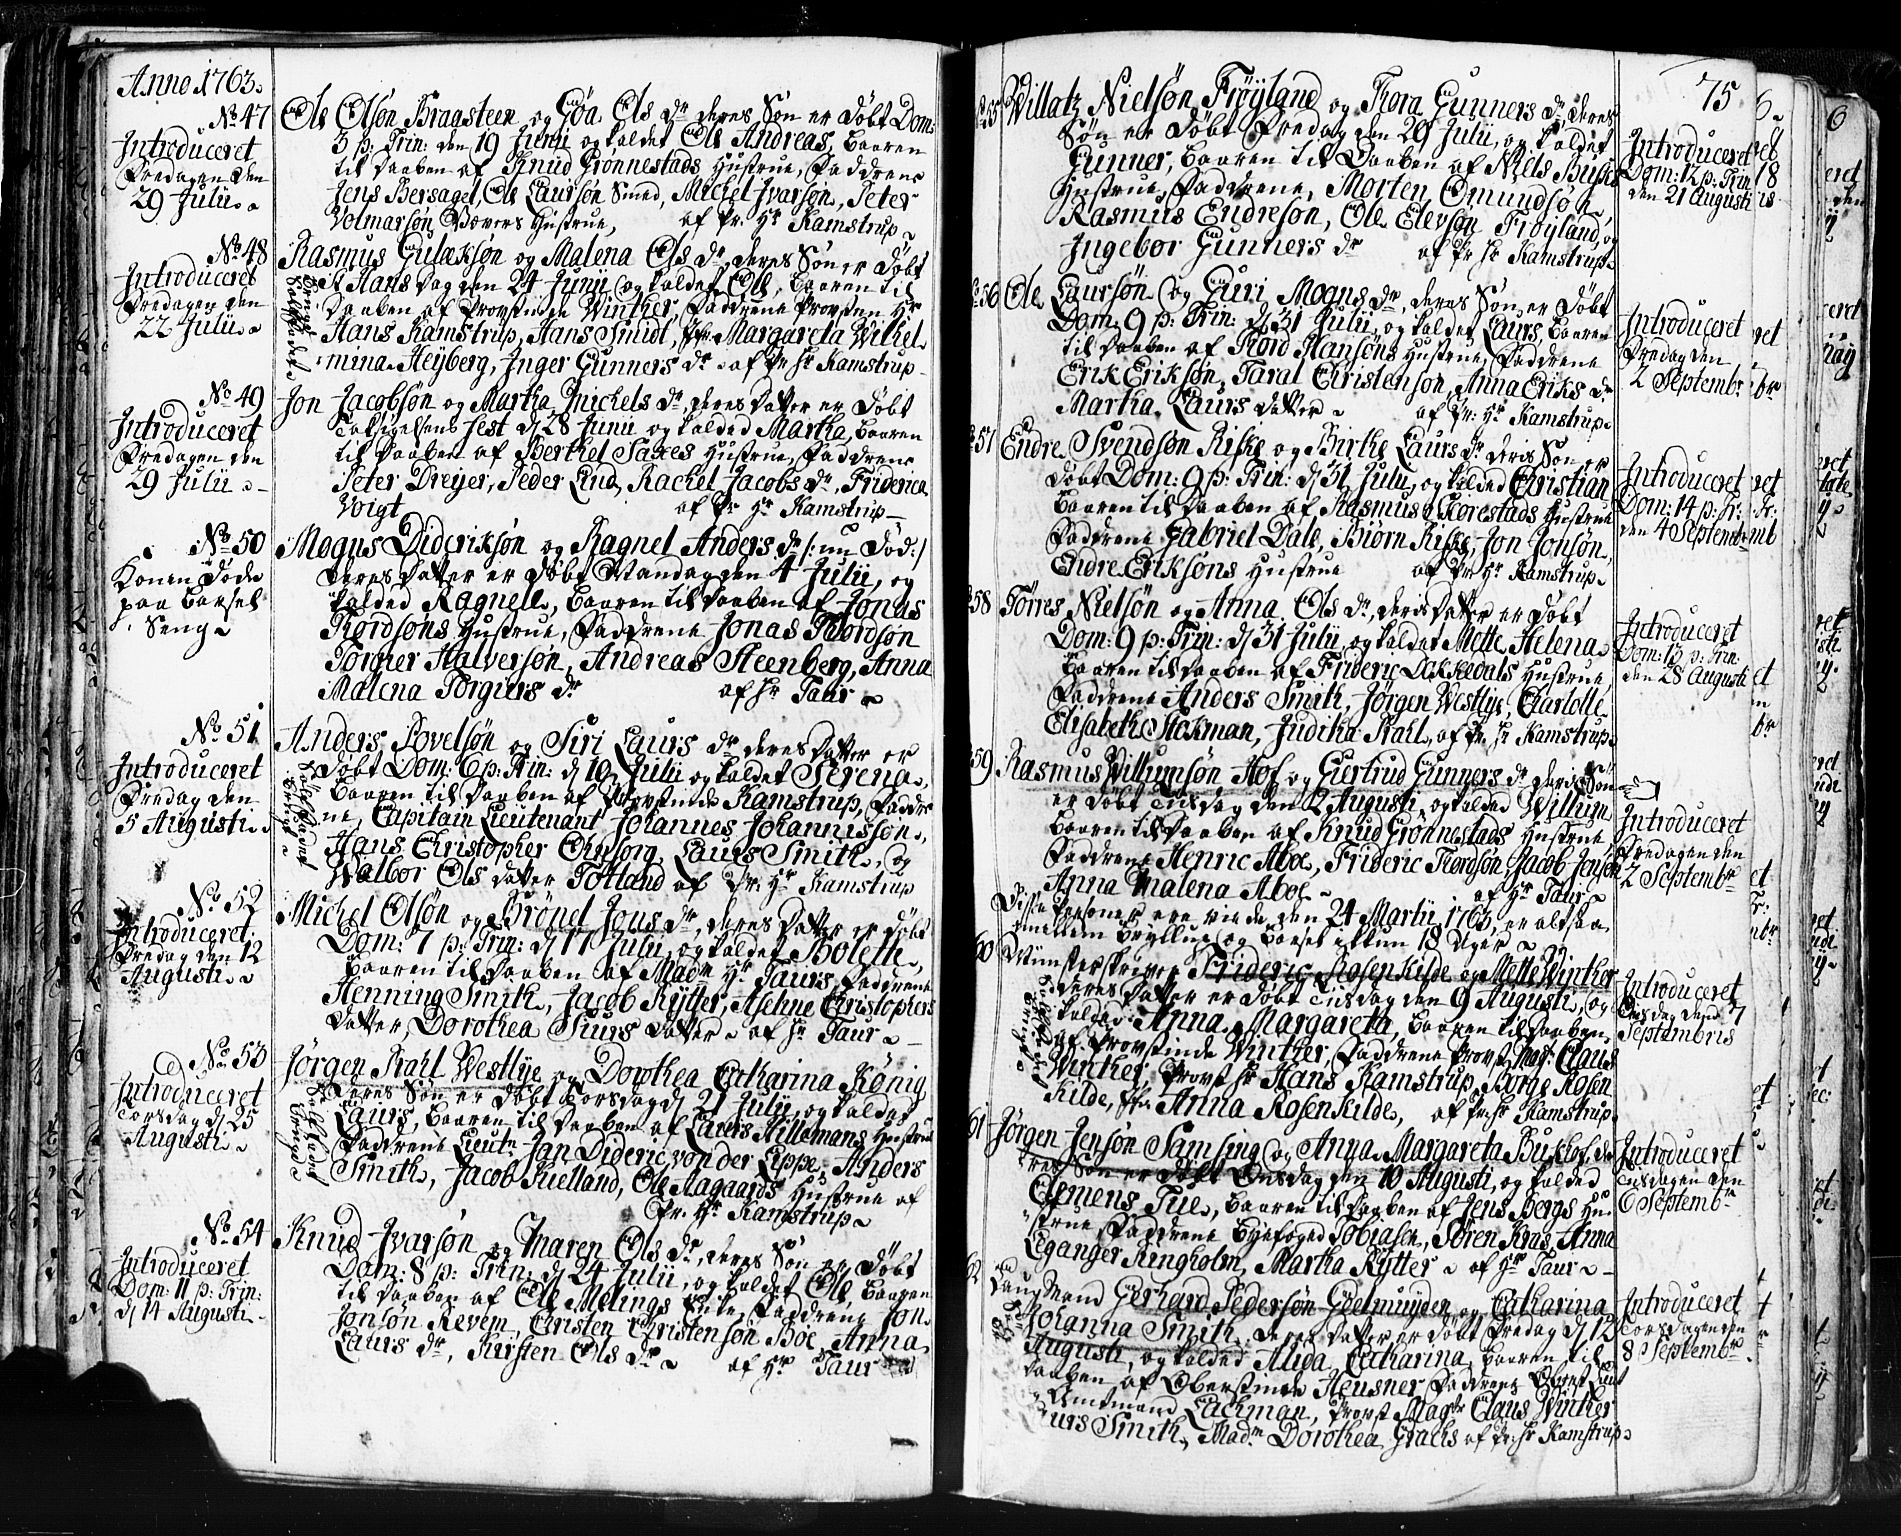 Anno 1763.
No 47
Introduceret
Fredagen den
29 Julii
Ole Olsøn Braasteen og Goa Ols dr deres Søn er døbt Dom:
3 p: Trin: den 19 Junii og kaldet Ole Andreas, baaren
til daaben af Knud Grønnestads Hustrue, Faddrene
Jens Bersagel, Ole Laursøn Smed, Michel Ivarsøn, Peter
Volmarsøn Hustrue, af Pr. Hr Kamstrup
No 48
Introduceret
Fredagen den
22 Julii
Rasmus Gulaksøn og Malena Ols dr, deres Søn er døbt
St Hans Dag den 24 Junii og kaldet Ole, baaren til
Daaben af Provstinde Winther, Faddrene Provsten Hr
Hans Kamstrup, Hans Smidt, Margareta Wilhel-
mina Heyberg, Inger Gunners dr af Pr Hr Kamstrup
No 49
Introduceret
Fredagen den
29 Julii
Jon Jacobsøn og Martha Michels dr, deres datter er døbt
Fest d 28 Junii og kalded Martha, baaren
til daaben af Berthel Saxes Hustrue, Faddrene
Peter Dreyer, Peder Lind, Rachel Jacobs dr, Friderica
Voigt af Pr Hr Kamstrup
No 50
Konen døde
paa Barsel
Seng
Mogns Dideriksøn og Ragnel Anders dr /: nu død :/
deres datter er døbt Mandag den 4 Julii, og
kaldet Ragnele, baaren til daaben af Jonas
Thordsøns Hustrue, Faddrene Jonas Thordsøn
Torgier Halversøn, Andreas Steenberg, Anna
Malena Torgiers dr af Hr Taur
No 51
Introduceret
Fredag den
5 Augusti
Anders Povelsøn og Siri Laurs dr deres datter er
døbt Dom: 6 p: Trin: d 10 Julii og kaldet Serena,
baaren til daaben af Provstinde Kamstrup, Faddre
ne, Capitain Lieutenant Johannes Johannissøn,
Hans Christopher Ohnsorg, Laurs Smith, og
Walbor Ols datter Totland af Pr. Hr Kamstrup
No 52
Introduceret
Fredag den 12
Augusti
Michel Olsøn og Brønel Jons dr, deres datter er døbt
Dom: 7 p: Trin: d 17 Julii, og kaldet Bolethe,
baaren til daaben af Madm Hr Taurs, Faddrene
Henning Smith, Jacob Rytter, Asehne Christophers
datter, Dorothea Siurs datter af Hr Taur
No 53
Introduceret
Torsdag d 25
Augusti
Jørgen Krahl Westlye og Dorothea Catharina König
deres Søn er døbt Torsdag d 21 Julii, og kaldet
Laurs, baaren til daaben af Laurs Hillemans Hustrue
Faddrene Lieutn Jan Dideric von der Lippe, Anders
Smith, Jacob Kielland, Ole Aagaards Hustrue af
Pr. Hr Kamstrup
No 54
Introduceret
Dom: 11 p: Trin:
d 14 Augusti
Knud Ivarsøn og Maren Ols dr, deres Søn er døbt
Dom: 8 p: Trin: d 24 Julii, og kaldet Ole baaren
til daaben af Ole Melings Enke, Faddrene Jon
Jonsøn Revem, Christen Christensøn Boe Anna
Laurs dr, Kirsten Ols dr af Hr Taur
75
55
Willatz Nielsøn Frøyland og Thora Gunners dr deres
Søn er døbt Fredag den 29 Julii, og kaldet
Gunner, baaren til daaben af Niels Buskes
Hustrue, Faddrene, Morten Omundsøn,
Rasmus Endresøn, Ole Elevsøn Frøyland, og
Ingebor Gunners dr af Pr Hr Kamstrup
Introduceret
Dom: 12 p: Trin:
den 21 Augusti
56
Ole Laursøn og Guri Mogns dr, deres Søn er døbt
Dom: 9 p: Trin: d 31 Julii, og kaldet Laurs, baaren
til daaben af Thord Hansøns Hustrue, Faddrene
Erik Eriksøn, Taral Christensøn, Anna Eriks dr
Martha Laurs datter af Pr: Hr Kamstrup
Introduceret
Fredag den
2 Septembr
57
Endre Svendsøn Riske og Birthe Laurs dr deres Søn er
døbt Dom: 9 p: Trin: d 31 Julii, og kaldet Christian
baaren til daaben af Rasmus Thorestads Hustrue
Faddrene Gabriel Dale, Biørn Riske, Jon Jonsøn,
Endre Eriksøns Hustrue af Pr Hr Kamstrup
Introduceret
Dom: 14 p: Tr:
den 4 Septembr
58
Torres Nielsøn og Anna Ols dr, deres datter er døbt
Dom: 9 p: Trin: d 31 Julii og kaldet Mette Helena,
baaren til daaben af Frideric Hustrue,
Faddrene Anders Smith, Jørgen Westlye, Charlotte
Elisabeth Stokman, Juditha Krahl, af Pr. Hr Kamstrup
Introduceret
Dom: 13 p: Trin:
den 28 Augusti
59
Rasmus Villumsøn Hof, og Giertrud Gunners dr deres Søn
er døbt Tiisdag den 2 Augusti, og kaldet Willum
baaren til daaben af Knud Grønnestads Hustrue
Faddrene Henric Aboe, Frideric Thordsøn, Jacob Jensøn
Anna Malena Aboe af Hr Taur
Disse Personer ere viede den 24 Martii 1763, er altsaa
imellem Bryllup og Barsel ikkun 18 Uger
Introduceret
Fredagen den
2 Septembr
60
Frideric Rosenkilde og Mette Winther
deres datter er døbt Tiisdag den 9 Augusti, og
kaldet Anna Margareta, baaren til daaben
af Provstinde Winther, Faddrene Provst Magr Claus
Winther, Provst Hr Hans Kamstrup, Børge Rosen
kilde, Anna Rosenkilde, af Pr: Hr Kamstrup
Introduceret
Onsdag den 7
Septembris
61
Jørgen Jensøn Samsing og Anna Margareta de
res Søn er døbt Onsdag den 10 Augusti, og kaldet
Clemens Tue, baaren til daaben af Jens Bergs Hu
strue, Faddrene Byefoged Tobiasen, Søren Kras, Anna
Leganger Ringholm, Martha Rytter af Hr Taur
Introduceret
Tiisdagen den
6 Septembr
62
Laugmand Gerhard Pedersøn Geelmuyden og Catharina
Johanna Smith, deres datter er døbt Fredag d 12
Augusti, og kaldet Alida Catharina, baaren til
daaben af Oberstinde Heusner, Faddrene
Amtmand Lachman, Provst Magr Claus Winther
Laurs Smith, Madm Dorothea Grachs af Pr: Hr Kamstrup
Introduceret
Torsdagen den
8 Septembr